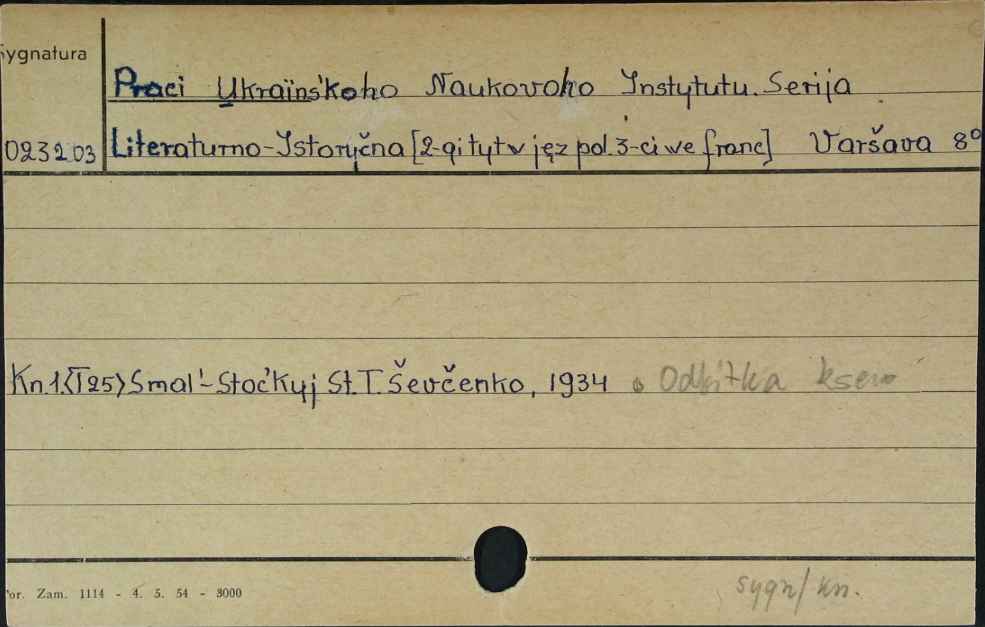 Sygnatura
Praci Ukraïns'koho Naukovoho Instytutu. Serija
023203 Literaturno-Istoryčna [2-gi tyt w jęz pol. 3-ci we franc] Varšava 8°
Kn.1.<T25> Smal'-Stoc'kyj St. T. Ševčenko, 1934 Odbitka ksero
or. Zam. 1114 - 4. 5. 54 - 3000
sygn/kn.